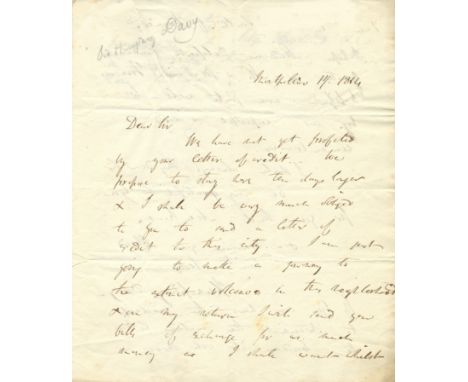 Sir Humphry Davy
Montpelier 14 1814
Dear Sir
We have not yet profited
by your letter of credit. We
propose to stay here ten days longer
& I shall be very much obliged
to you to send a letter of
credit to this city. I am just
going to make a journey to
the extinct volcanoes in this neighbourhood
& on my return I will send you
bills of exchange for as much
money as I shall want whilst